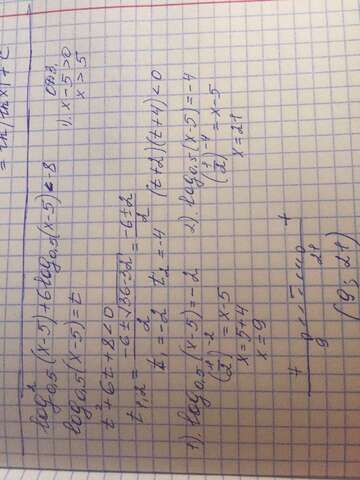 log²₀,₅(x-5)+6log₀,₅(x-5)<-8
ОДЗ.
1). x-5>0
x>5
log₀,₅(x-5)=t
t²+6t+8<0
t₁,₂ = (-6±√36-32)/2 = (-6±2)/2
t₁=-2 t₂=-4 (t+2)(t+4)<0
1). log₀,₅(x-5)=-2
(1/2)⁻² = x-5
x=5+4
x=9
2). log₀,₅(x-5)=-4
(1/2)⁻⁴ = x-5
x=21
+ +
9 21
(9; 21)